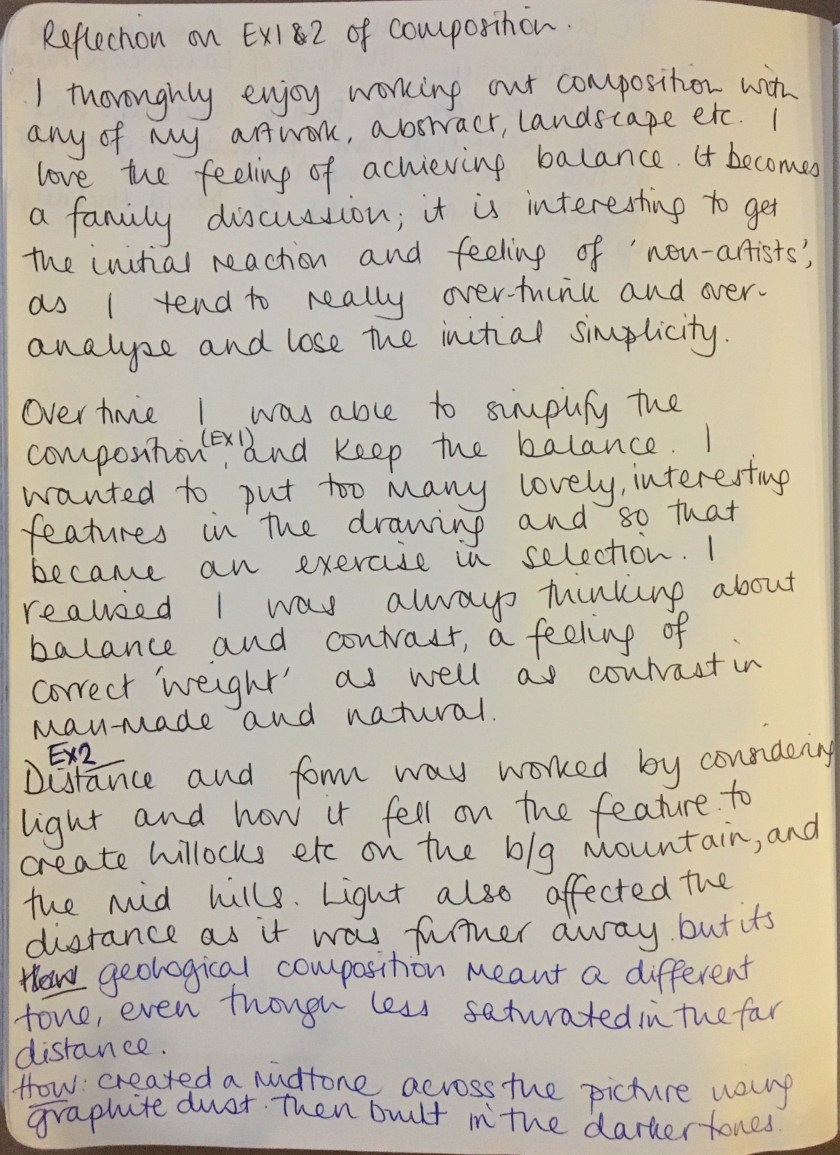 Reflection on EX1&2 of composition.
I thoroughly enjoy working out composition with
any of my artwork, abstract, landscape etc. I
love the feeling of achieving balance. It becomes
a family discussion; it is interesting to get
the initial reaction and feeling of 'non-artists',
as I tend to really over-think and over-
analyse and lose the initial simplicity.
Over time I was able to simplify the
composition (EX1), and keep the balance. I
wanted to put too many lovely, interesting
features in the drawing and so that
became an exercise in selection. I
realised I was always thinking about
balance and contrast, a feeling of
correct 'weight' as well as contrast in
man-made and natural.
EX2
Distance and form was worked by considering
light and how it fell on the feature to
create hillocks etc on the b/g mountain, and
the mid hills. Light also affected the
distance as it was further away but its
geological composition meant a different
tone, even though less saturated in the far
distance.
How: created a midtone across the picture using
graphite dust. Then built in the darker tones.